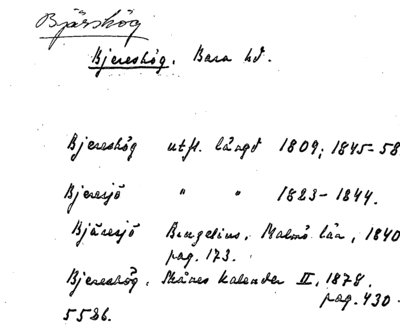 Bjärshög
Bjereshög. Bara hd.
Bjereshög utfl. längd 1809; 1845-58.
Bjeresjö " " 1823-1844.
Bjäresjö Bruzelius, Malmö län, 1840
pag. 173.
Bjereshög, Skånes kalender II, 1878.
pag. 430-
5526.